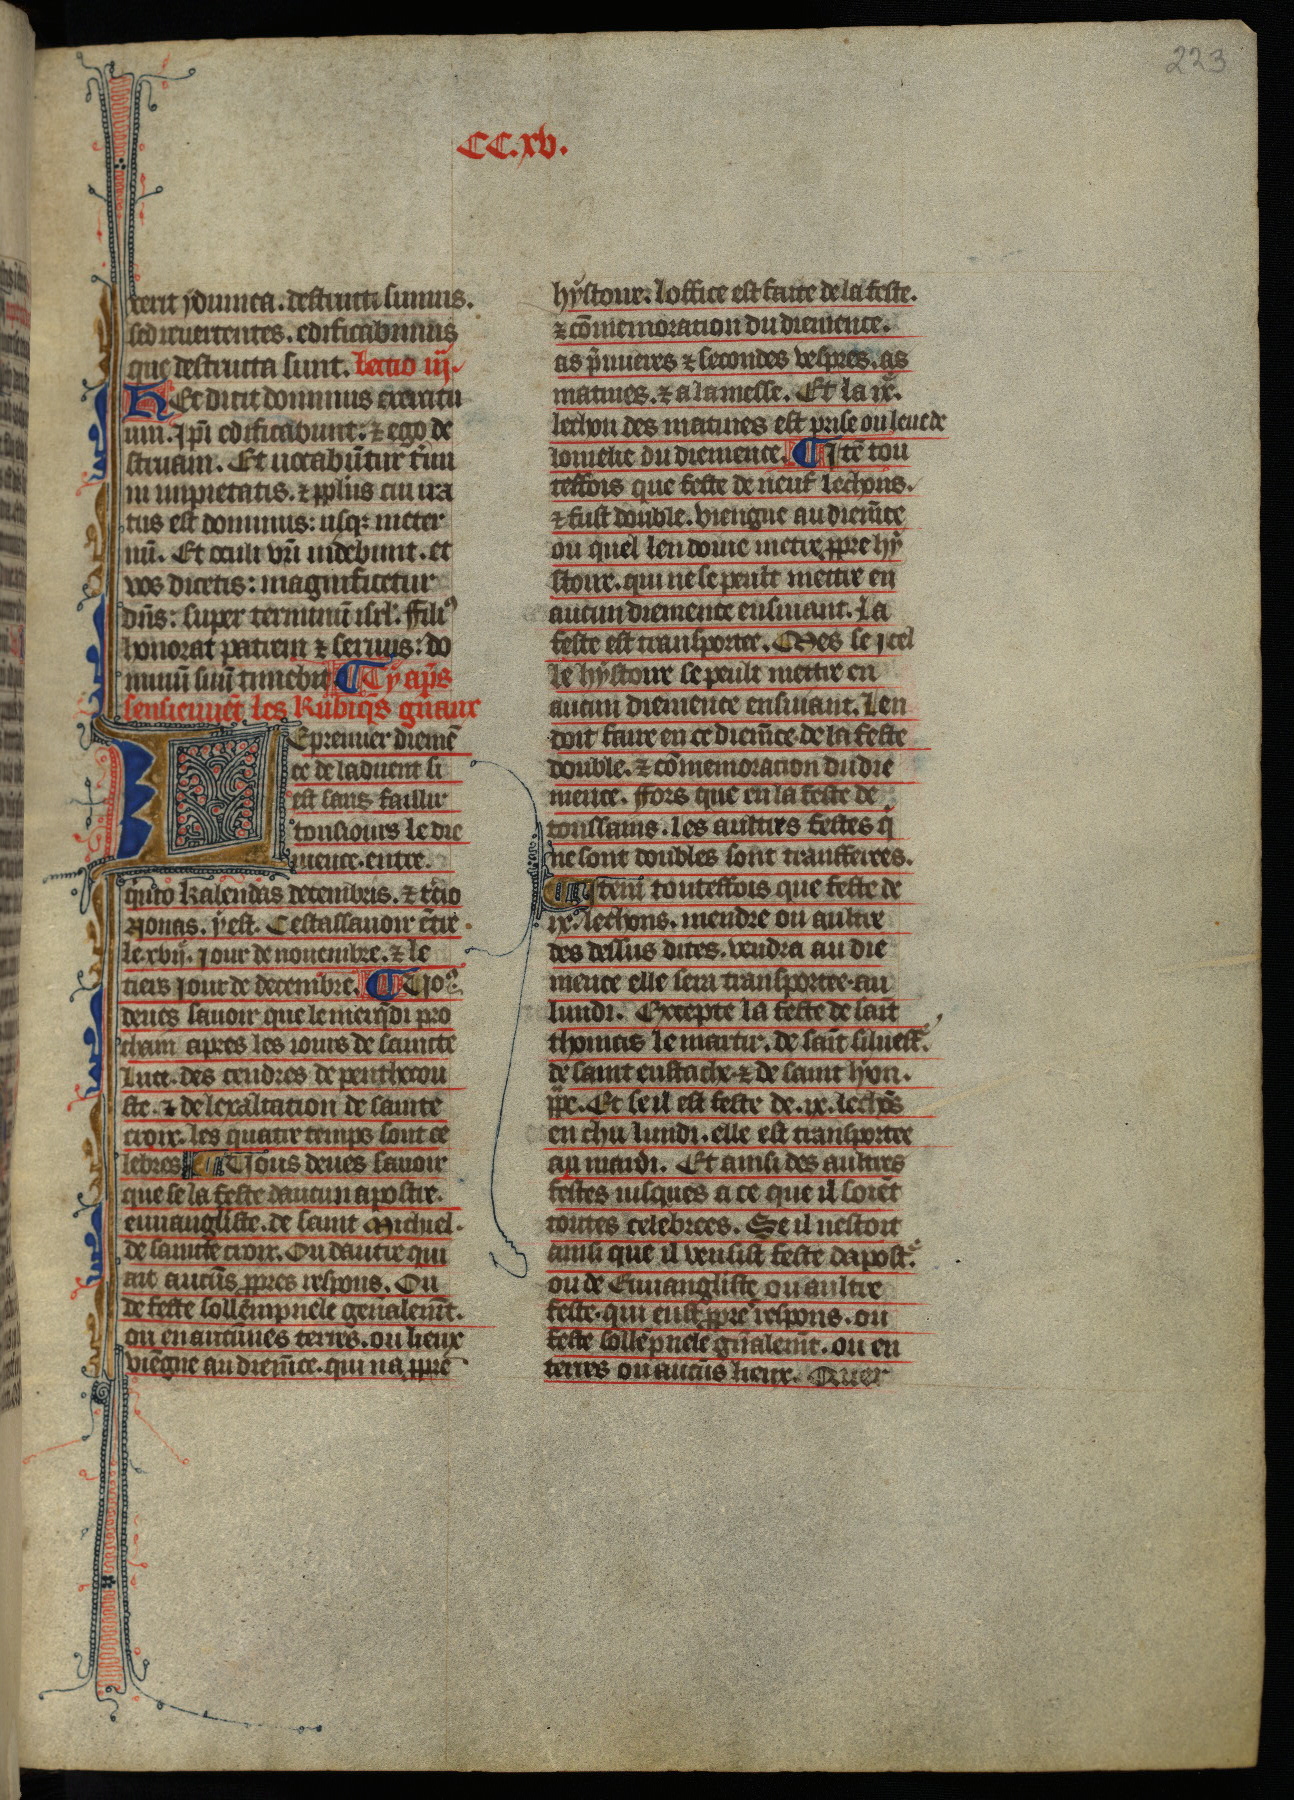 223
CC.xv.
xerit ydumea. destructi sumus.
sed reuertentes. edificabimus
que destructa sunt. lectio iij.
Hec dicit dominus exercitu
um. Ip̃i edificabunt: ⁊ ego de
struam. Et uocabũtur t̃mi
ni impietatis. ⁊ ppl̃us cui ira
tus est dominus: usq; in eter
nũ. Et oculi vr̃i uidebunt. et
vos dicetis: magnificetur
dñs: super terminũ isrl̃. Filiꝰ
honorat patrem ⁊ seruus: do
minũ suũ timebit. Cy ap̃s
sensieuuẽt les Rubiq̃s gñaux
Le premier diemẽ
ce de laduent si
est sans faillir
tousiours le die
mence. entre.
quĩto kalendas decembris. ⁊ t̃cio
Nonas. yest. Cestassauoir ẽt̃re
le xxvij. iour de nouembre. ⁊ le
tiers iour de decembre. Uoꝰ
deues sauoir que le merq̃di pro
chain apres les iours de saincte
luce. des cendres de penthecou
ste. ⁊ de lexaltation de sainte
croix. les quatre temps sont ce
lebres. Uous deues sauoir
que se la feste daucun apostre.
euuangliste. de saint Michiel.
de sainte croix. Ou dautre qui
ait aucũs ꝓpres respons. Ou
de feste sollempnele gen̄alem̃t.
ou en aucũnes terres. ou lieux
viẽgne au diem̃ce. qui na ꝓpre
hystoire. loffice est faite de la feste.
⁊ cõmemoration du diemence.
as p̃mieres ⁊ secondes vespres. as
matines. ⁊ a la messe. Et la ix.ᵉ
lechon des matines est prise ou leuue de
lomelie du diemence. Itẽ tou
teffois que feste de neuf lechons.
⁊ fust double. viengne au diem̃ce
ou quel len doiue metre ꝓpre hy
stoire. qui ne se peult mettre en
aucun diemence ensiuant. La
feste est transportee. Mes se icel
le hystoire se peult mettre en
aucun diemence ensiuant. Len
doit faire en ce diem̃ce de la feste
double. ⁊ cõmemoracion du die
mence. Fors que en la feste de
toussains. les aultres festes q̃
ne sont doubles sont transferees.
Item touteffois que feste de
ix. lechons. mendre ou aultre
des dessus dites. vendra au die
mence elle sera transportee au
lundi. Excepte la feste de saĩt
thomas le martir. de saĩt siluest̃.
de saint eustache ⁊ de saint hyon.
ppe. Et se il est feste de .ix. lechõs
en chu lundi. elle est transportee
au mardi. Et ainsi des aultres
festes iusques a ce que il soiẽt
toutes celebrees. Se il nestoit
ainsi que il vensist feste dapost̃.
ou de Euuangliste ou aultre
feste. qui eust ꝓpre respons. ou
feste sollẽpnele gñalem̃t. ou en
terres ou aucũs lieux. Quer